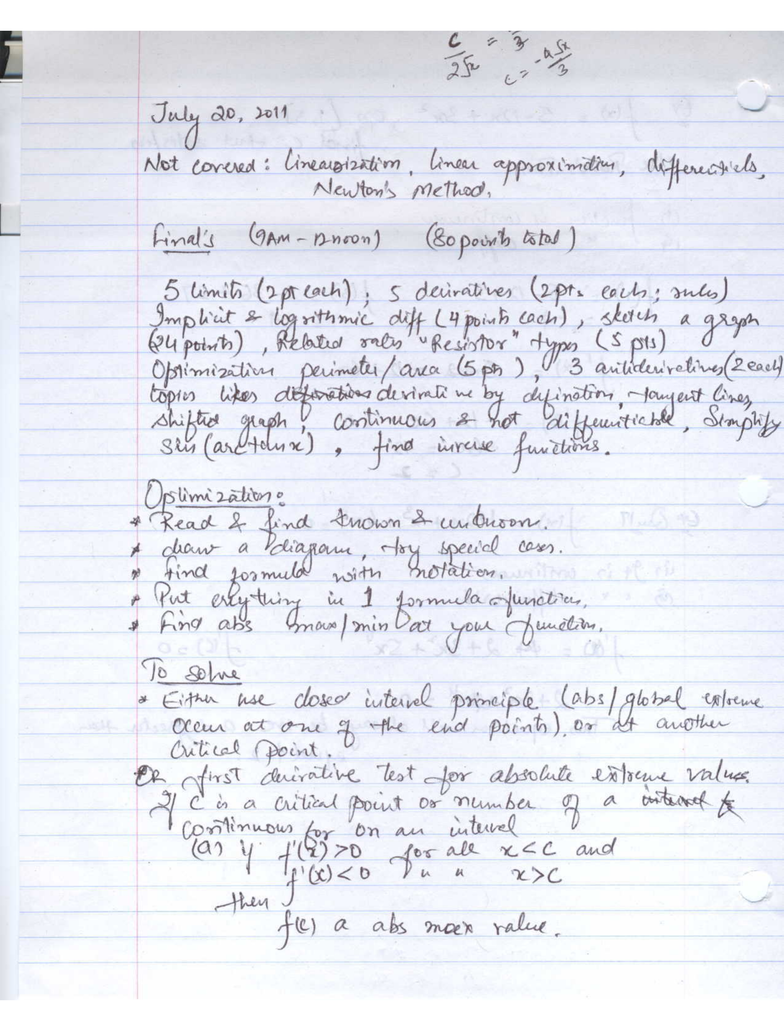 C/2√x = /3
c = -9√x/3
July 20, 2011
Not covered: linearization, linear approximation, differentials,
Newton's Method.
Final's (9AM - 12noon) (80 points total)
5 limits (2pt each); 5 derivatives (2pts each; rules)
Implicit & logrithmic diff (4 points each), sketch a graph
(24 points), Related rates "Resistor" types (5 pts)
Optimization perimeter/area (5 pts), 3 antiderivatives (2 each)
topics likes derivative by defination, tangent lines,
shifted graph, continuous & not differentiable, Simplify
Sin(arctan x), find inverse functions.
Optimization:
* Read & find known & unknown.
* draw a diagram, try special cases.
* find formula with notation.
* Put everything in 1 formula-function.
* Find abs max/min at your function.
To solve
* Either use closed interval principle (abs/global extreme
occur at one of the end points), or at another
Critical point.
OR first derivative Test for absolute extreme values.
If C is a critical point or number of a
continuous for on an interval
(a) if f'(x)>0 for all x<C and
f'(x)<0 " " x>C
then
f(c) a abs max value.